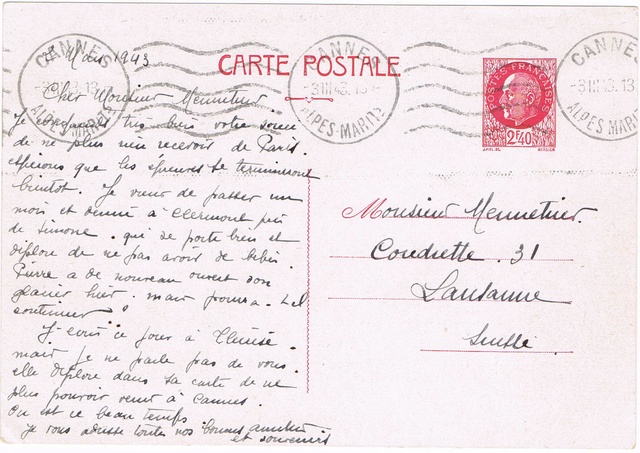 2 Mars 1943
CARTE POSTALE
CANNES
ALPES-MARIT
CANNES
3 III 43
ALPES-MARIT
CANNES
3 III 43
ALPES MARIT
POSTES FRANÇAISES
2F40
Cher Monsieur Mennetrier.
Je comprends très bien votre souci
de ne plus rien recevoir de Paris.
espérons que les épreuves se termineront
bientôt. Je viens de passer un
mois et demi à Clermont près
de Simone. qui se porte bien et
déplore de ne pas avoir de bébé.
Pierre a de nouveau ouvert son
glacier hier. mais pourra-t-il
continuer?
J'écris ce jour à
mais je ne parle pas de vous.
elle déplore dans sa carte de ne
plus pouvoir venir à Cannes.
Où est ce beau temps
je vous adresse toutes nos bonnes amitiés
et souvenirs
Monsieur Mennetrier.
Coudrette. 31
Lausanne
Suisse